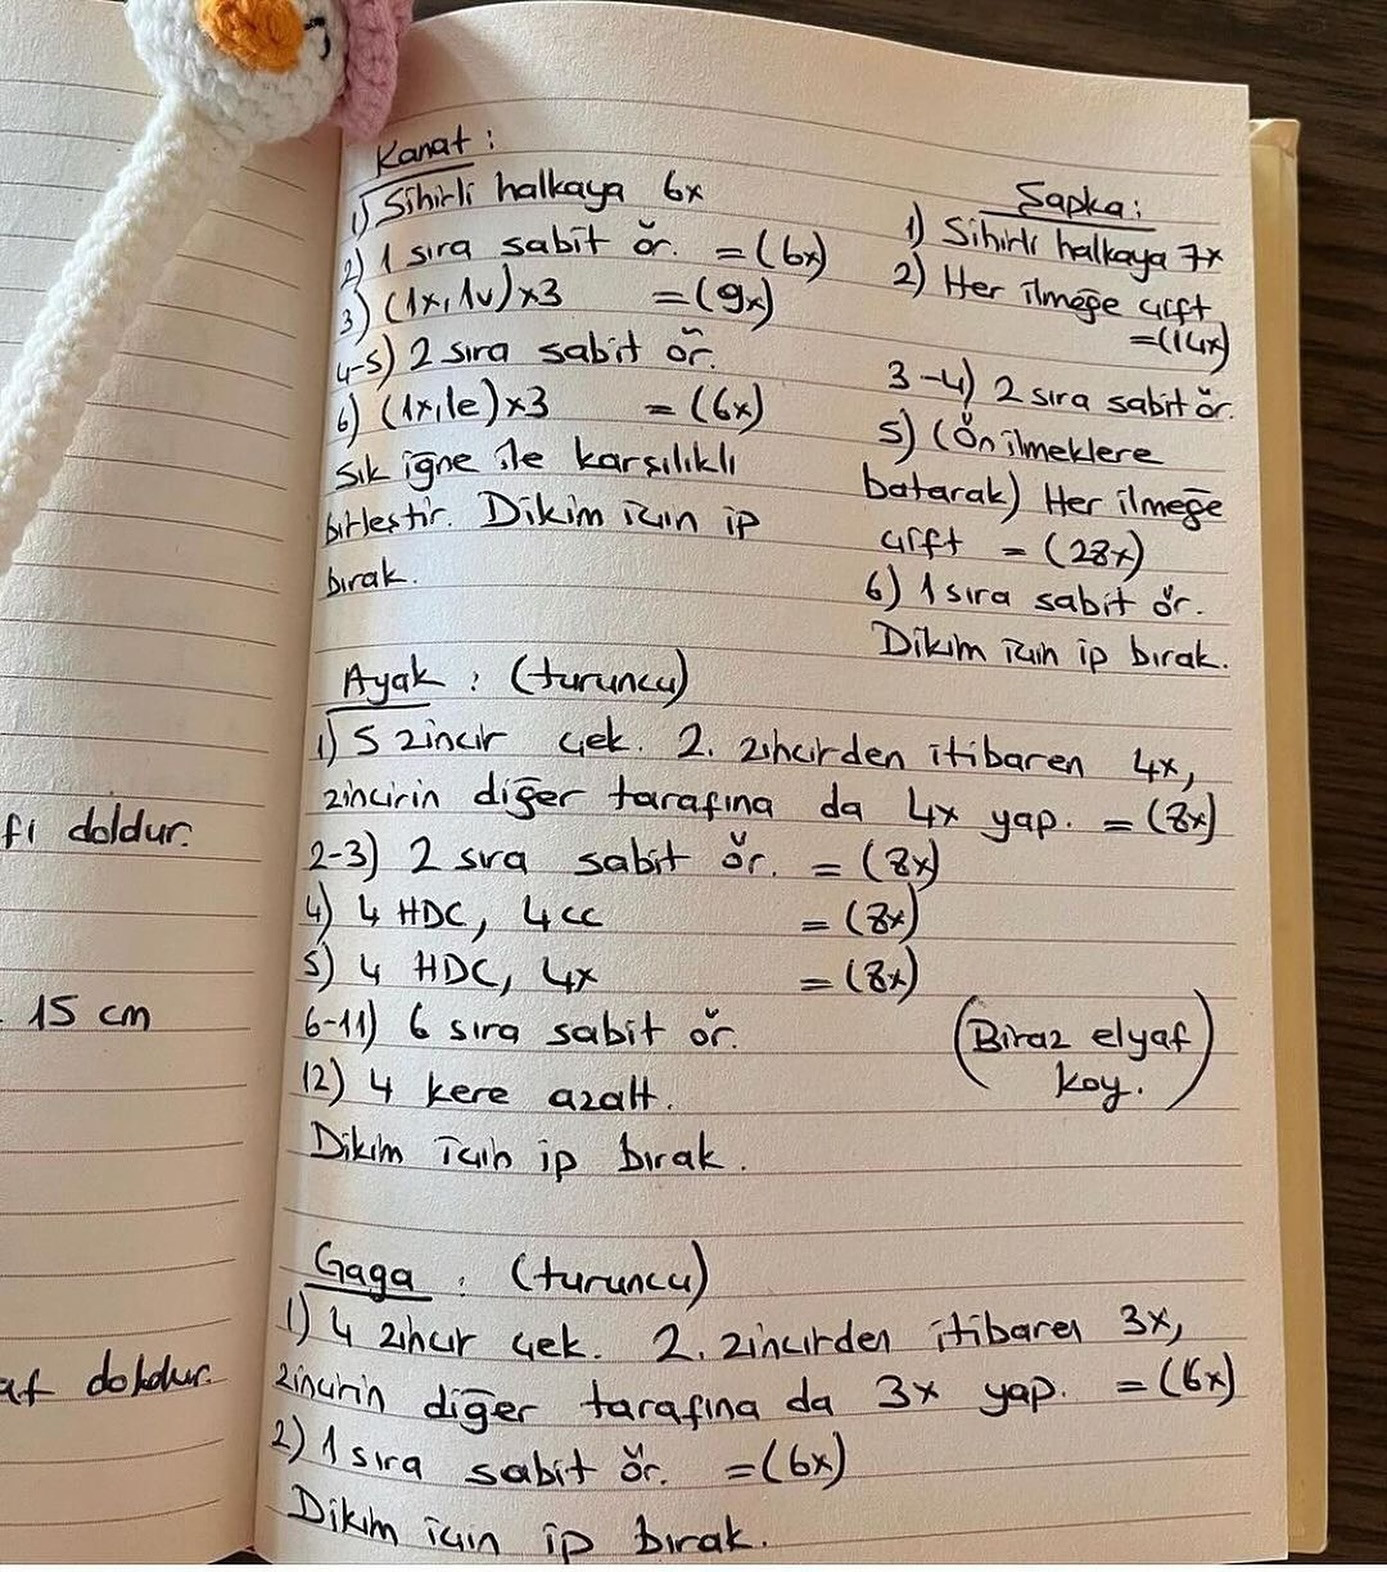 Kanat :
1) Sihirli halkaya 6x
2) 1 sıra sabit ör. = (6x)
3) (1x,1v)x3 = (9x)
4-5) 2 sıra sabit ör.
6) (1x,1e)x3 = (6x)
Sık iğne ile karşılıklı
birleştir. Dikim için ip
bırak.
Şapka :
1) Sihirli halkaya 7x
2) Her ilmeğe çift
=(14x)
3-4) 2 sıra sabit ör.
5) (Ön ilmeklere
batarak) Her ilmeğe
çift = (28x)
6) 1 sıra sabit ör.
Dikim için ip bırak.
Ayak : (turuncu)
1) 5 zincir çek. 2. zincirden itibaren 4x,
zincirin diğer tarafına da 4x yap. = (8x)
2-3) 2 sıra sabit ör. = (8x)
4) 4 HDC, 4cc = (8x)
5) 4 HDC, 4x = (8x)
6-11) 6 sıra sabit ör.
(Biraz elyaf
koy.)
12) 4 kere azalt.
Dikim için ip bırak.
Gaga : (turuncu)
1) 4 zincir çek. 2. zincirden itibaren 3x,
zincirin diğer tarafına da 3x yap. = (6x)
2) 1 sıra sabit ör. =(6x)
Dikim için ip bırak.
doldur.
15 cm
doldur.